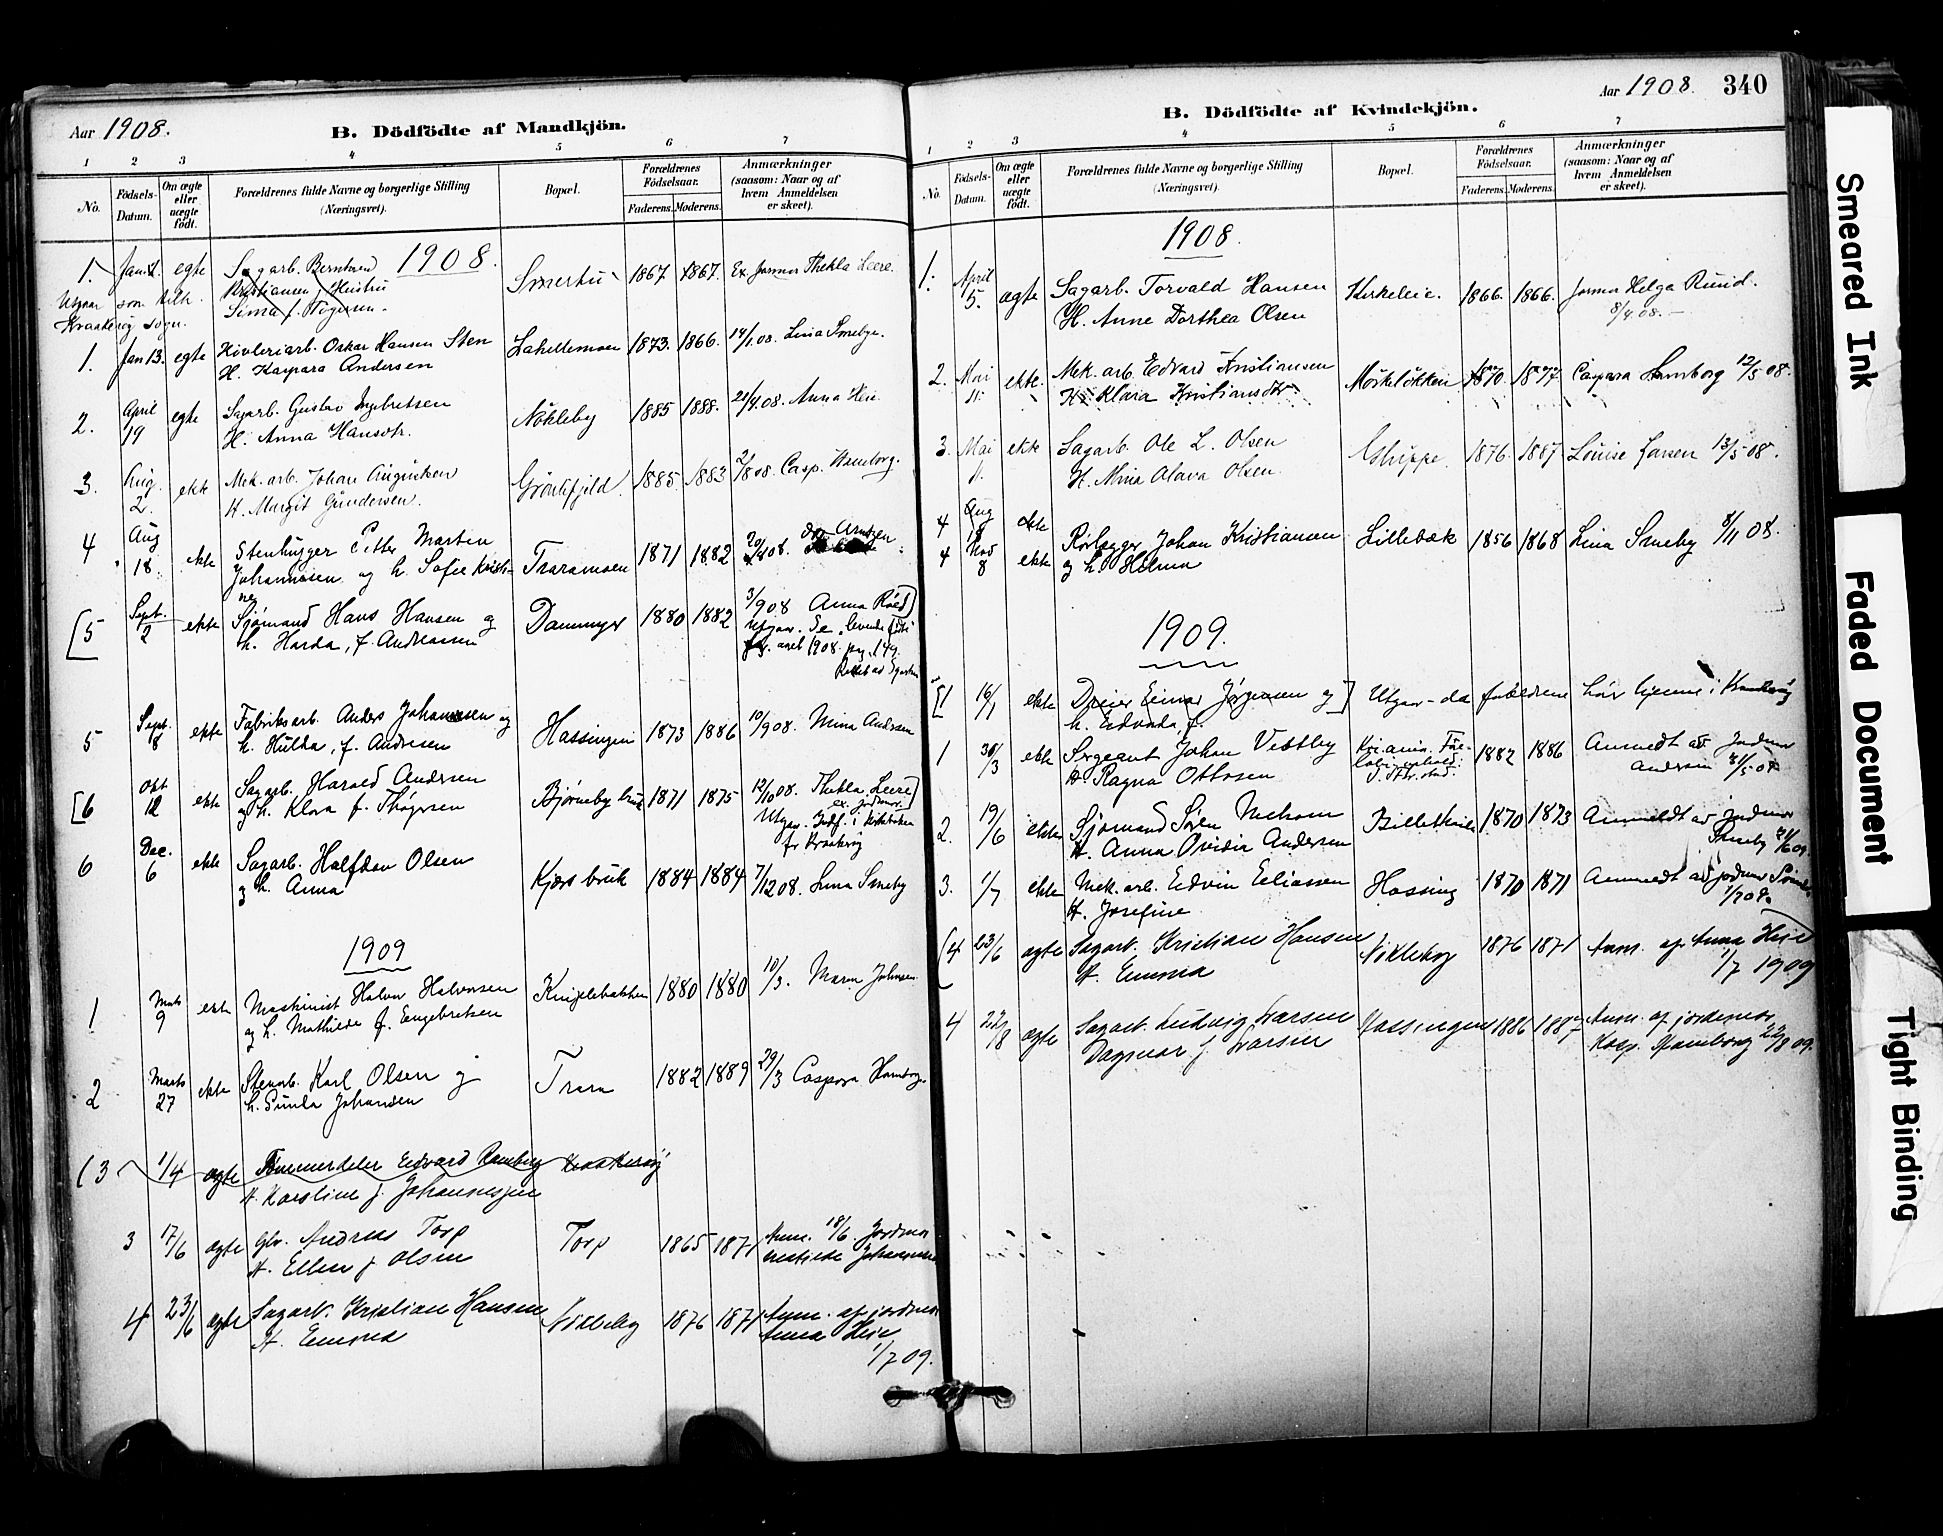 Aar 1908.
B. Dödfödte af Mandkjön.
1 2 3 4 5 6 7
No.
Födsels-Datum.
Om ægte eller uægte födt.
Forældrenes fulde Navne og borgerlige Stilling (Næringsvei).
Bopæl.
Forældrenes Födselsaar.
Faderens. Moderens.
Anmærkninger (saasom: Naar og af hvem Anmeldelsen er skeet).
1908.
1. Jan. egte Sagarb. Berntsen 1867 1867. Thekla Leere.
Kristiansen Hustru
Utgaar som tilh.
Kraakerøy sogn.
1. Jan 13. egte Høvleriarb. Oskar Hansen Sten Lahellemoen 1873. 1866. 14/1.08. Lina Smebye.
H. Kaspara Andersen
2. April 19 egte Sagarb. Gustav Ingebretsen Nökleby 1885 1888. 21/4.08. Anna Heie
H. Anna Hansdtr.
3. Aug. 2. ekte Mek. arb. Johan Augustsen Gröntfjeld. 1885. 1883 2/8 08. Casp. Hamborg.
H. Margit Gundersen.
4 Aug 18. ekte Stenhugger Petter Marten Traramoen 1871 1882
Johannesen og h. Sofie Kristine
[5 Sept. 2 ekte Sjømand Hans Hansen og Dammyr 1880 1882 3/9 08 Anna Röed]
h. Harda, f. Andreassen Utgaar. Se levende
aaret 1908. pag. 149.
5 Sept. 18 ekte Fabriksarb. Anders Johannesen og Hassingen 1873 1886 19/9 08. Mina Andersen
h. Hulda, f. Andresen
[6 Okt 12 ekte Sagarb. Harald Andersen Bjørneby bruk 1871 1875 12/10 08. Thekla Leere]
og h. Klara f. Thøgersen
Utgaar. Indf. i kirkeboken
for Kraakerøy
6 Dec. 6 ekte Sagarb. Halfdan Olsen Kjærs bruk 1884 1884 7/12 08. Lina Smeby
og h. Anna
1909
1 Marts 9 ekte Maskinist Halvor Halvorsen Knipelsbakken 1880 1880 10/3. Maren Johnsen
og h. Mathilde f. Engebretsen
2 Marts 27 ekte Stenarb. Karl Olsen og Trara 1882 1889 29/3 Caspara Hamborg.
h. Gunda Johansen
(3 1/4 ægte Edvard Ramberg Kraakerøy
H. Karoline f. Johannessen
3 17/6 ægte Gbr. Andreas Torp Torp 1865 1871 Anm. 18/6 Jordmor
H. Ellen f. Olsen
4 23/6 ægte Sagarb. Kristian Hansen Nökleby 1876 1871 Anm. af jordmor
H. Emma Anna Heie
1/7 09.
Aar 1908. 340
B. Dödfödte af Kvindekjön.
1 2 3 4 5 6 7
No.
Födsels-Datum.
Om ægte eller uægte födt.
Forældrenes fulde Navne og borgerlige Stilling (Næringsvei).
Bopæl.
Forældrenes Födselsaar.
Faderens. Moderens.
Anmærkninger (saasom: Naar og af hvem Anmeldelsen er skeet).
1908.
1. April 5. ægte Sagarb. Torvald Hansen Kirkeleie. 1866. 1866. Jormor Helga Ruud.
H. Anne Dorthea Olsen 8/4.08.
2. Mai 11. ekte. Mek. arb. Edvard Kristiansen Mörkelökken 1870. 1877 Caspara Hamborg 12/5 08.
H. Klara Kristiansdtr.
3. Mai 11. ekte Sagarb. Ole L. Olsen Gluppe. 1876. 1887 Louise Larsen 13/5 08.
H. Mina Olava Olsen.
4 Aug 18 ekte
4 Nov 8 ekte Rørlegger Johan Kristiansen Lillebæk 1856 1868 Lina Smeby 8/11 08.
og h. Helma
1909.
[1 16/1 ekte Dreier Einar Jørgensen og] Utgaar - da forældrene hør hjemme i Kraakerøy
h. Edvarda, f.
1 30/3 ekte Sergeant Johan Vestby 1882 1886 Anmeldt av Jordmor
H. Ragna Ottosen Andersen
2. 19/6 ekte Sjømand Sören 1870 1873 Anmeldt av jordmor
H. Anna Ovidia Andersen Smeby
3. 1/7 ekte Mek. arb. Edvin Eliassen Hassing 1870 1871 Anmeldt av jordmor
H. Josefine
(4 23/6 ægte Sagarb. Kristian Hansen Nökleby 1876 1871 Anm. af Anna Heie
H. Emma 1/7 1909
4 22/8 ægte Sagarb. Ludvig Larsen Hassingen 1886 1887 Anm. af jordemor
Dagmar f. Larsen Kasp. Hamborg 22/8 09.
Smeared Ink
Faded Document
Tight Binding